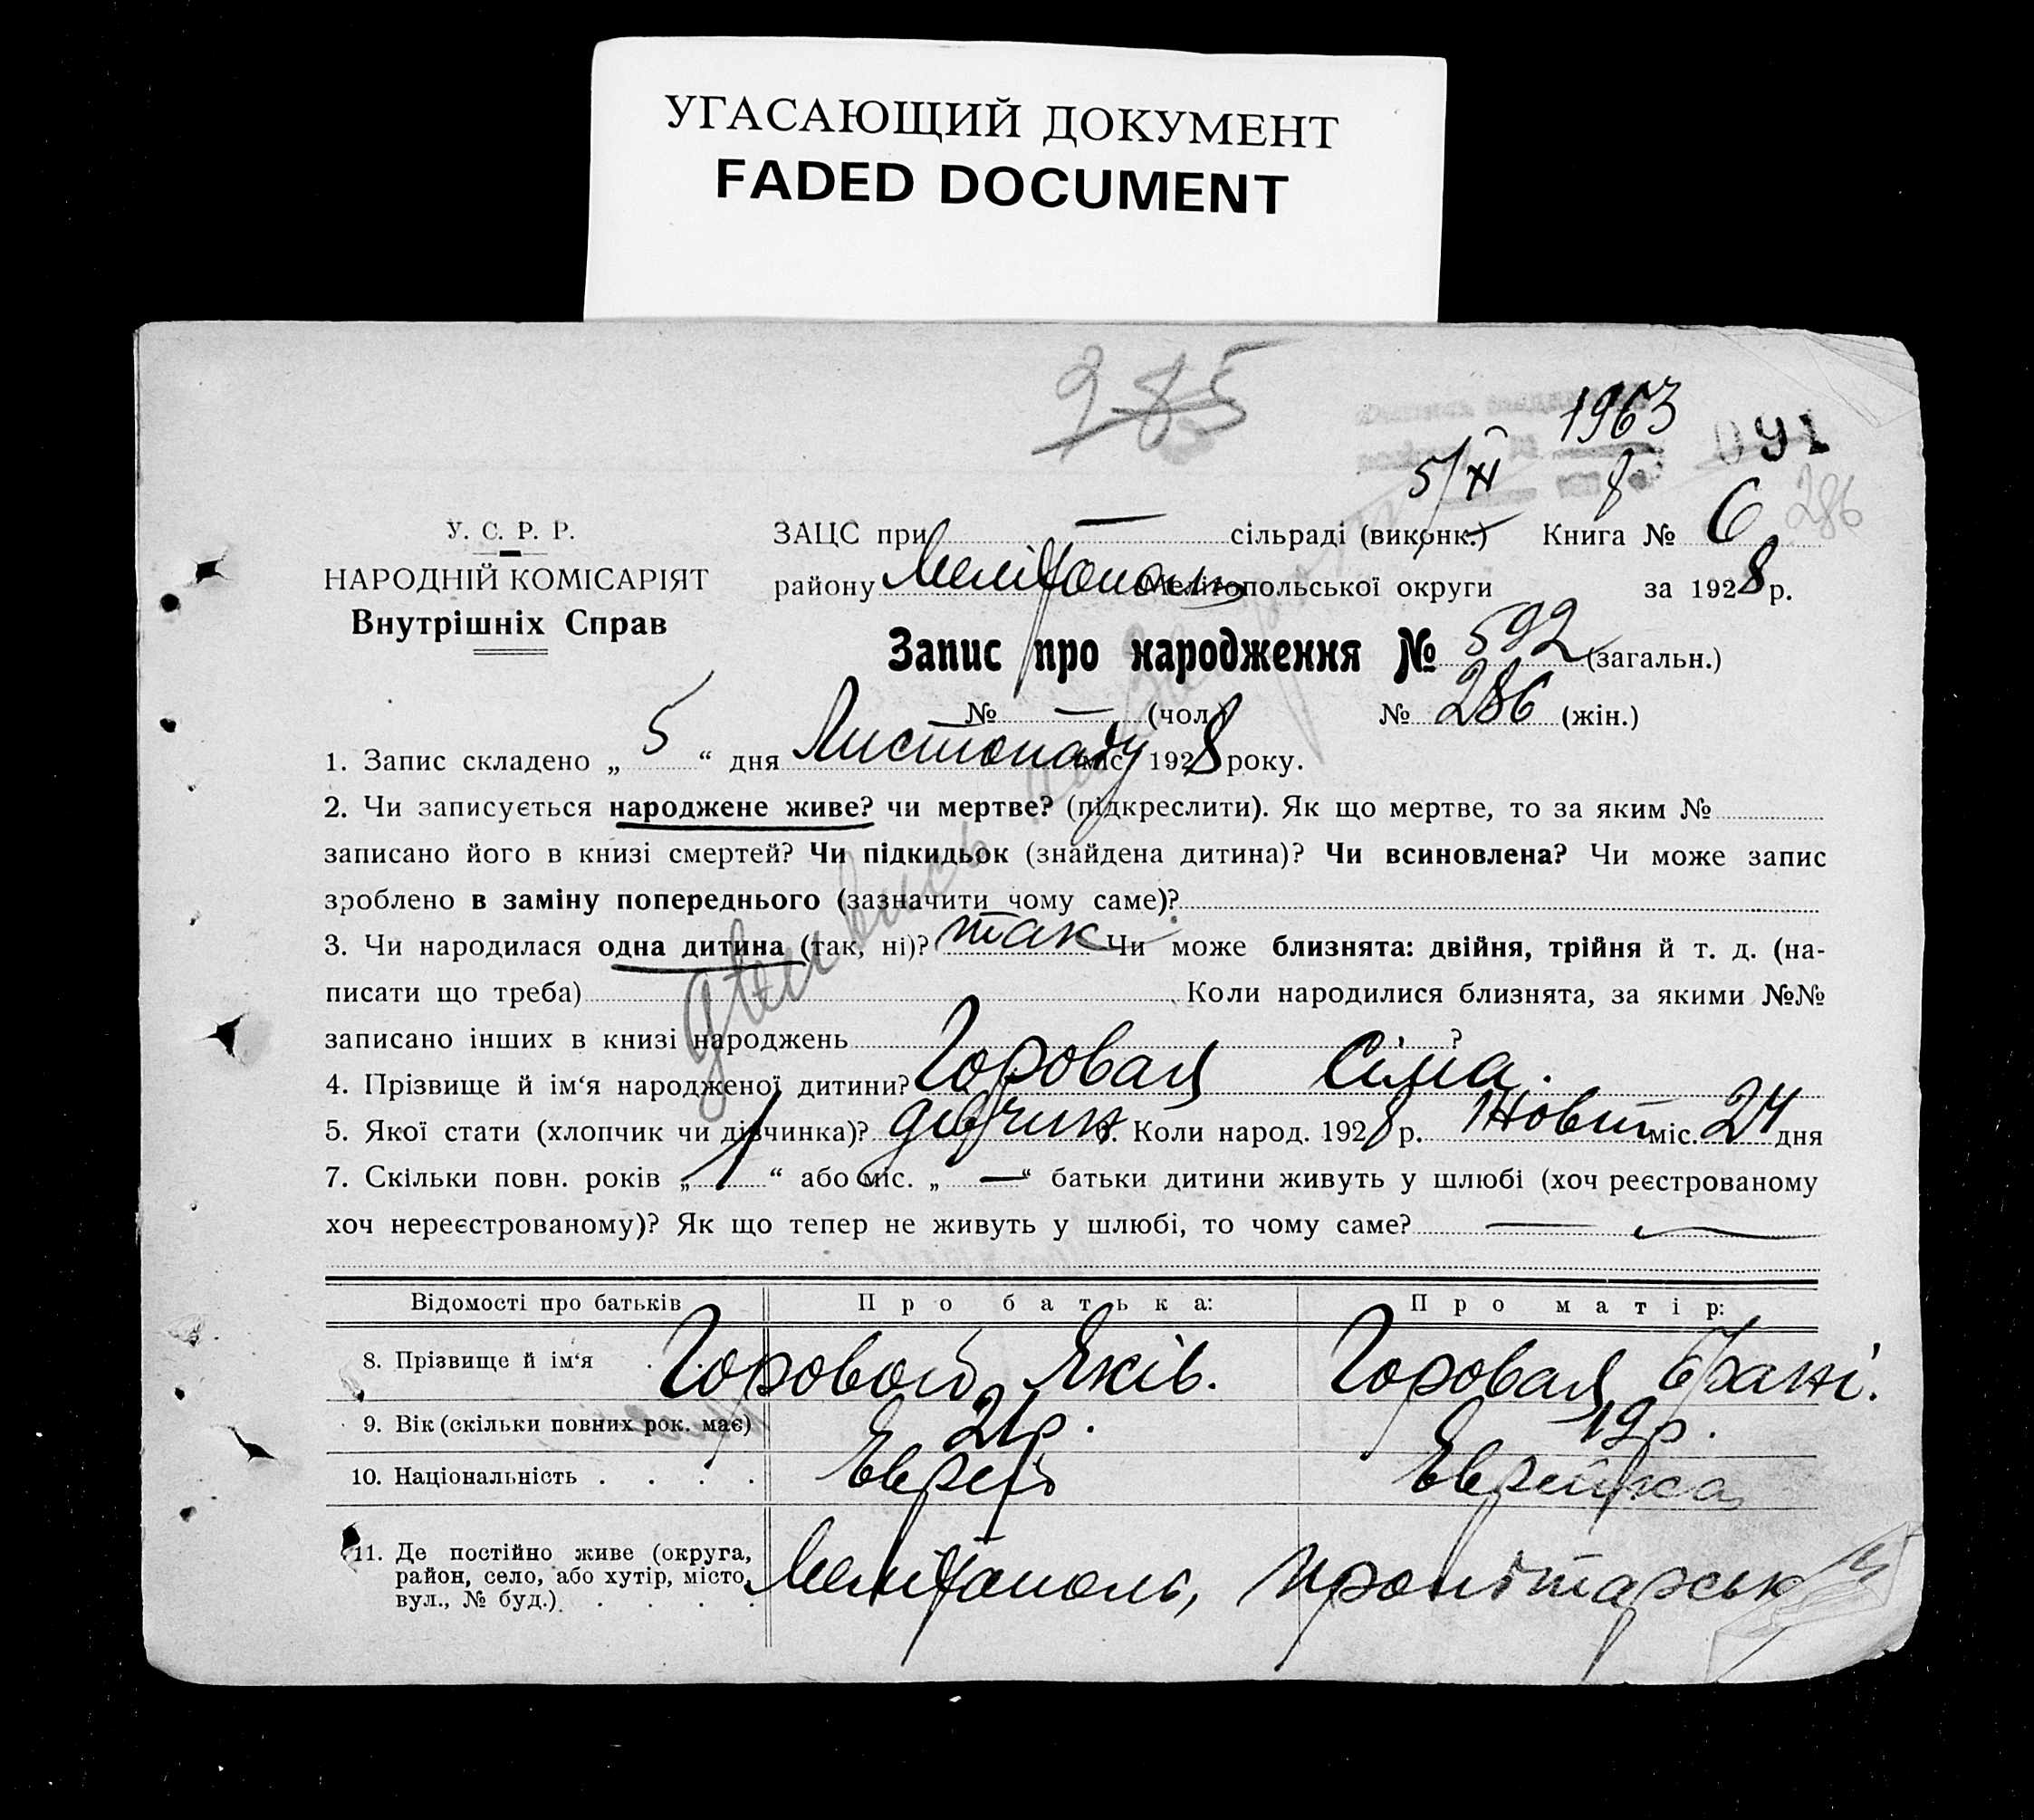 УГАСАЮЩИЙ ДОКУМЕНТ
FADED DOCUMENT
285
1963
091
5/XI 8
286
У. С. Р. Р.
НАРОДНІЙ КОМІСАРІЯТ
Внутрішніх Справ
ЗАЦС при — сільраді (виконк.) Книга № 6
району Мелітополь Мелітопольської округи за 1928 р.
Запис про народження № 592 (загальн.)
№ — (чол.) № 286 (жін.)
1. Запис складено „ 5 “ дня Листопаду міс. 1928 року.
2. Чи записується народжене живе? чи мертве? (підкреслити). Як що мертве, то за яким №
записано його в книзі смертей? Чи підкидьок (знайдена дитина)? Чи всиновлена? Чи може запис
зроблено в заміну попереднього (зазначити чому саме)?
3. Чи народилася одна дитина (так, ні)? так Чи може близнята: двійня, трійня й т. д. (на-
писати що треба) Коли народилися близнята, за якими №№
записано інших в книзі народжень ?
4. Прізвище й ім‘я народженої дитини? Горовая Сіма.
5. Якої стати (хлопчик чи дівчинка)? дівчин 6. Коли народ. 1928 р. Жовт міс. 24 дня
7. Скільки повн. років „ 1 “ або міс. „ — “ батьки дитини живуть у шлюбі (хоч реєстрованому
хоч нереєстрованому)? Як що тепер не живуть у шлюбі, то чому саме? —
Відомості про батьків Про батька: Про матір:
8. Прізвище й ім‘я . Горовой Яків. Горовая
9. Вік (скільки повних рок. має) 21 р. 19 р.
10. Національність . . . . Еврей Еврейка
11. Де постійно живе (округа,
район, село, або хутір, місто,
вул., № буд.) . . . . Мелітополь, Пролітарськ